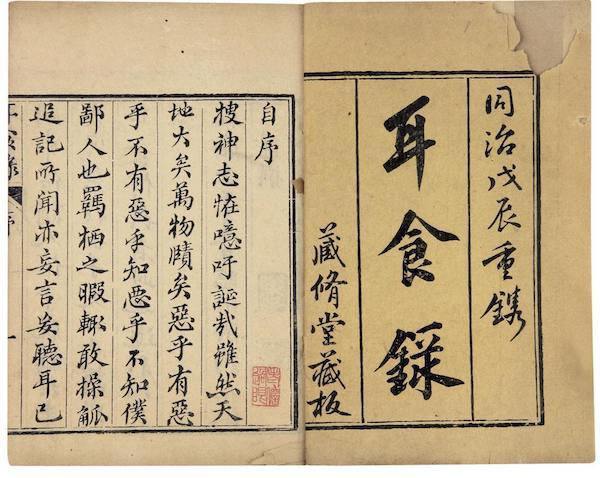 同治戊辰重鐫
耳食錄
藏脩堂藏板
自序
搜神志恠噫吁誕哉雖然天
地大矣萬物賾矣惡乎有惡
乎不有惡乎知惡乎不知僕
鄙人也羈栖之暇輒敢操觚
追記所聞亦妄言妄聽耳己
耳食錄 序 一